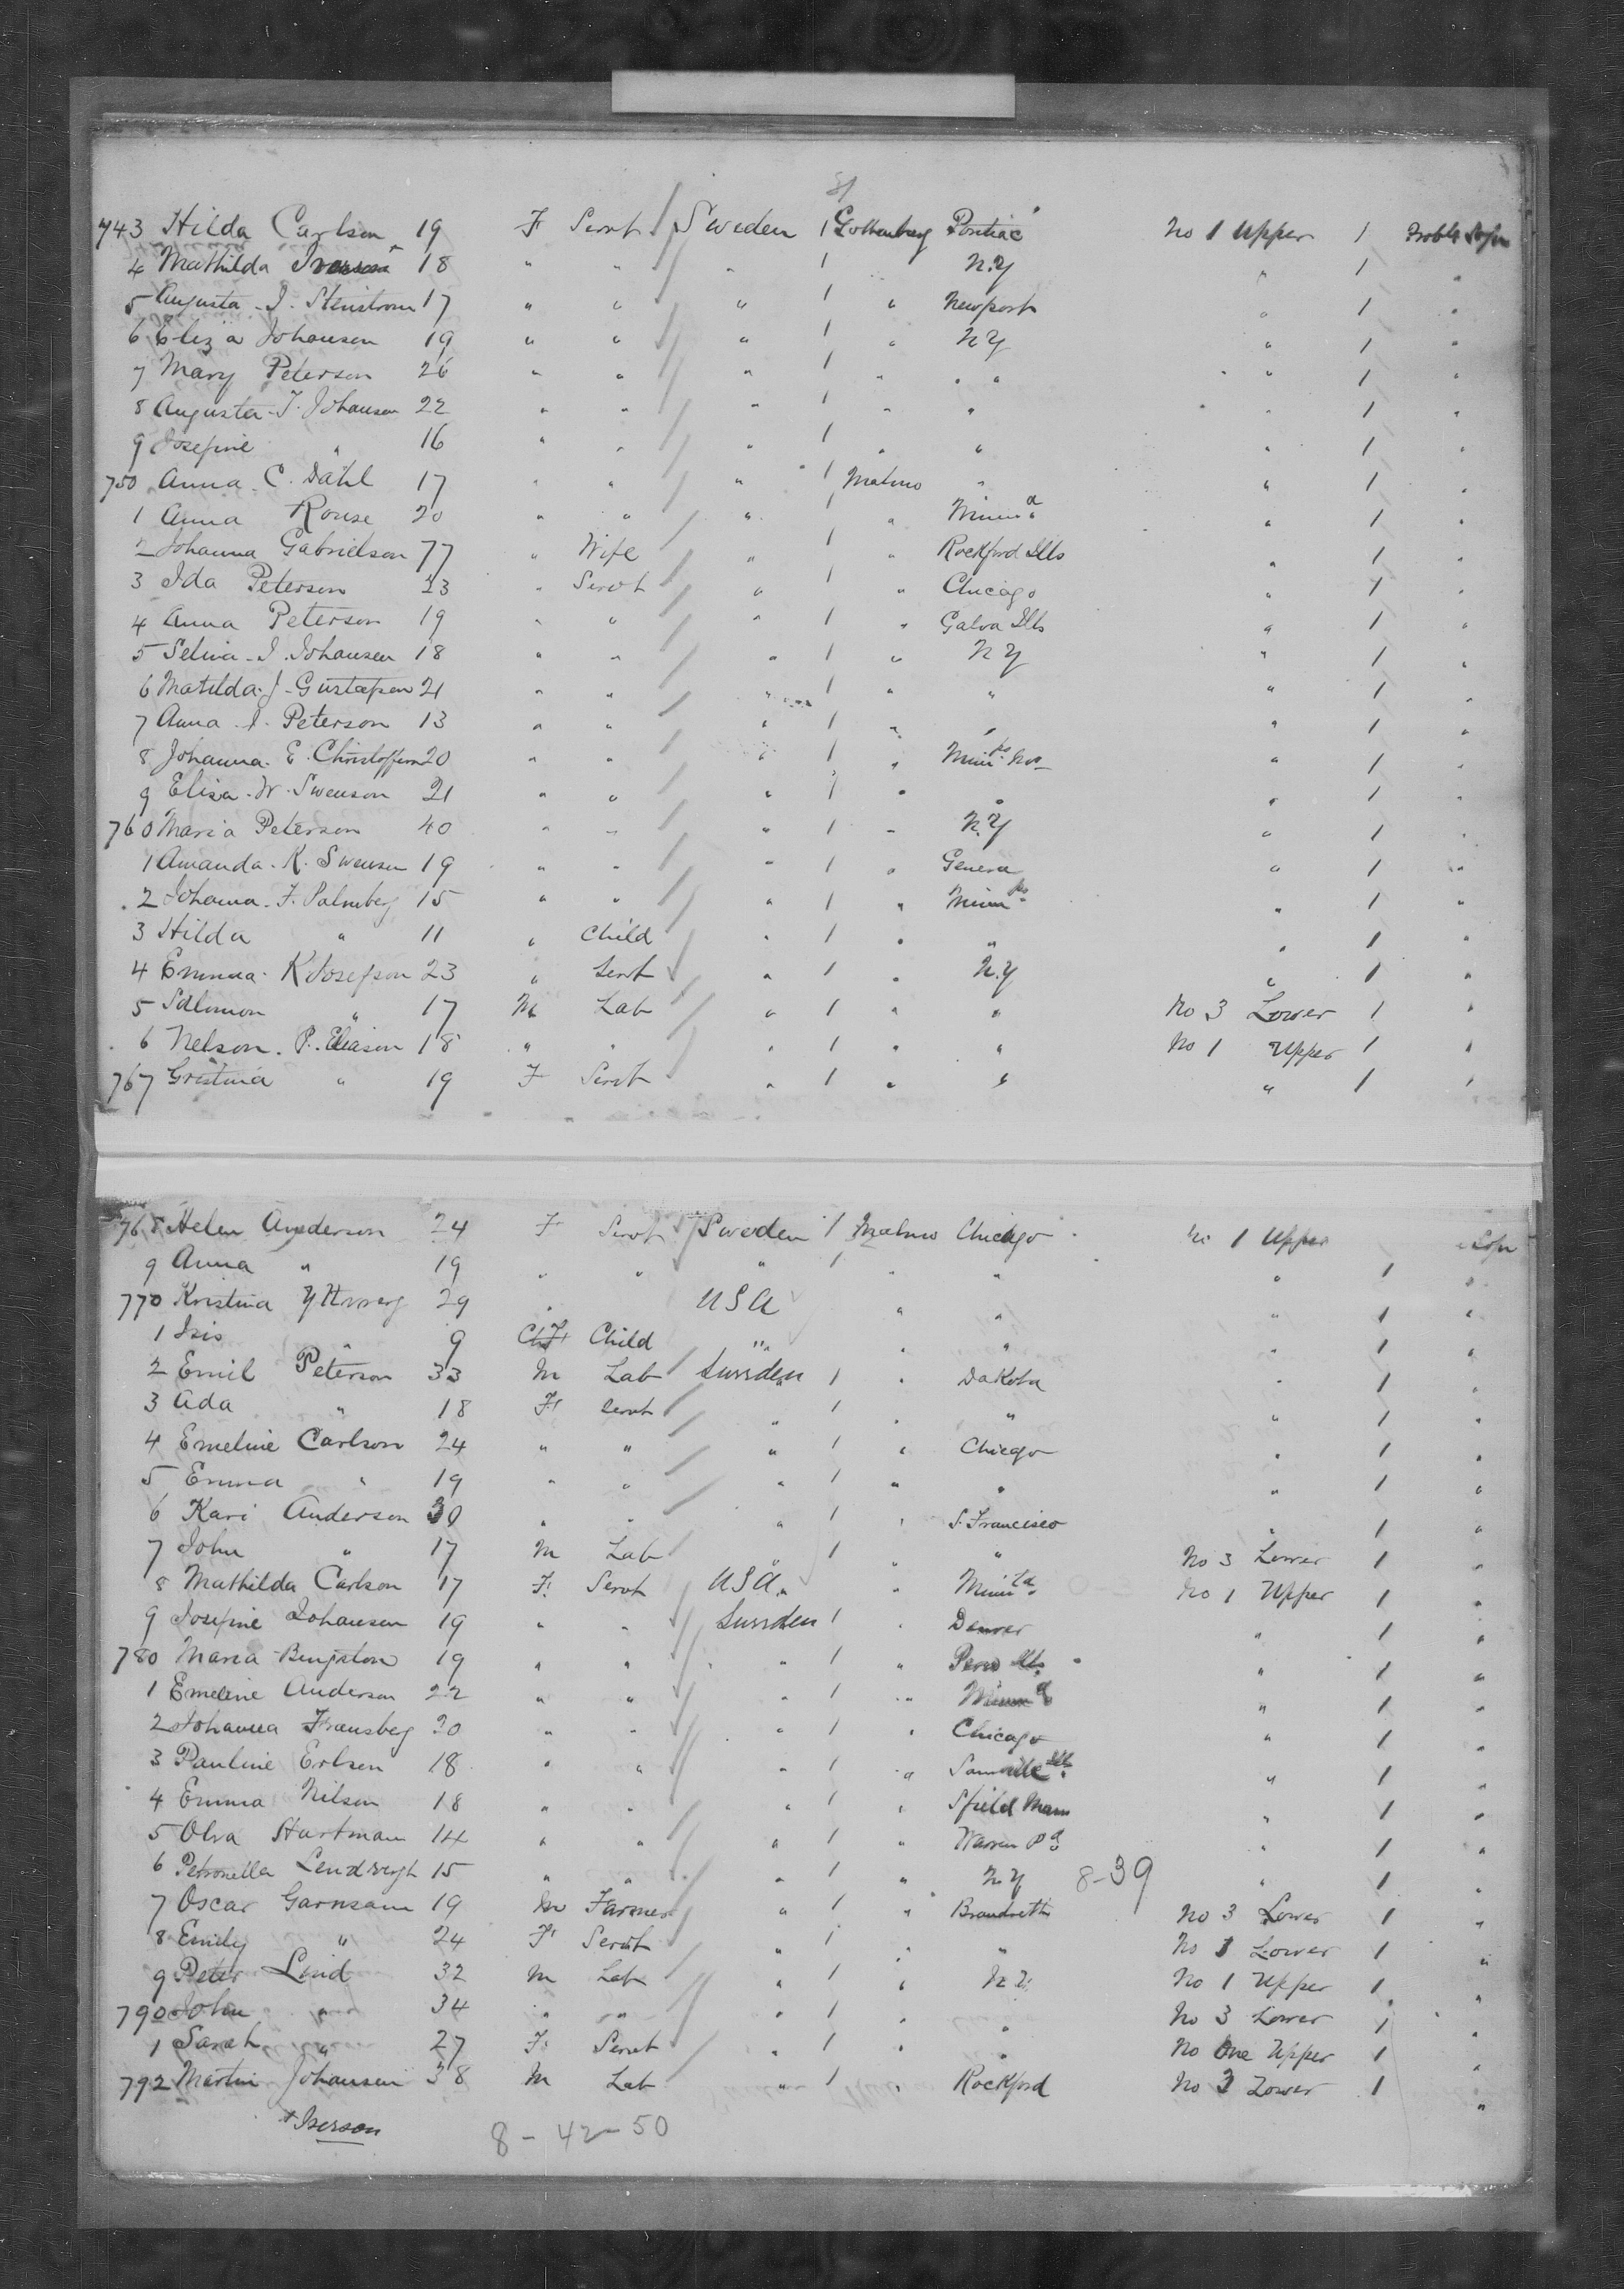 743 Hilda Carlson 19 F Servt / Sweden 1 Gottenberg Pontiac No 1 Upper 1 Probl
4 Mathilda 18 " " / " 1 N.Y " 1 "
5 Augusta . I . Stenstrom 17 " " / " 1 " Newport " 1 "
6 Eliza Johansen 19 " " / " 1 " N Y " 1 "
7 Mary Peterson 26 " " / " 1 " " " 1 "
8 Augusta . J . Johansen 22 " " / " 1 " " " 1 "
9 Josefine " 16 " " / " 1 " " " 1 "
750 Anna . C . Dahl 17 " " / " 1 Malmo " " 1 "
1 Anna Rouse 20 " " / " 1 " Minna " 1 "
2 Johanna Gabrielson 77 " Wife / " 1 " Rockford Ills " 1 "
3 Ida Peterson 23 " Servt / " 1 " Chicago " 1 "
4 Anna Peterson 19 " " / " 1 " Galva Ills " 1 "
5 Selma . I . Johansen 18 " " / " 1 " N Y " 1 "
6 Matilda . J . Gustafson 21 " " / " 1 " " " 1 "
7 Anna . I . Peterson 13 " " / " 1 " " " 1 "
8 Johanna . E . Christofferson 20 " " / " 1 " " 1 "
9 Elisa . W . Swenson 21 " " / " 1 " " " 1 "
760 Maria Peterson 40 " " / " 1 " N.Y " 1 "
1 Amanda . K . Swensen 19 " " / " 1 " Geneva " 1 "
2 Johanna . F . Palmberg 15 " " / " 1 " " 1 "
3 Hilda " 11 " Child " 1 " " " 1 "
4 Emma . K Josefson 23 " Servt / " 1 " N.Y " 1 "
5 Salomon " 17 M Lab / " 1 " " No 3 Lower 1 "
6 Nelson . P . Eliason 18 " " " 1 " " No 1 Upper 1 "
767 Gristina " 19 F Servt " 1 " " " 1 "
768 Helen Anderson 24 F Servt / Sweden 1 Malmo Chicago No 1 Upper
9 Anna " 19 " " " 1 " " " 1 "
770 Kristina 29 " USA " " " 1 "
1 Isis " 9 F Child " " " " 1 "
2 Emil Peterson 33 M Lab / Sweden 1 " Dakota " 1 "
3 Ada " 18 F Servt / " 1 " " " 1 "
4 Emeline Carlson 24 " " / " 1 " Chicago " 1 "
5 Emma " 19 " " / " 1 " " " 1 "
6 Kari Anderson 30 " " / " 1 " S. Francisco " 1 "
7 John " 17 M Lab / " 1 " " No 3 Lower 1 "
8 Mathilda Carlson 17 F Servt / USA " " Minnta No 1 Upper 1 "
9 Josefine Johansen 19 " " / Sweden 1 " Denver " 1 "
780 Maria Bengston 19 " " / " 1 " Peru Ills " 1 "
1 Emeline Anderson 22 " " / " 1 " Minna " 1 "
2 Johanna Fransberg 20 " " / " 1 " Chicago " 1 "
3 Pauline Erlsen 18 " " / " 1 " Ills " 1 "
4 Emma Nilsen 18 " " / " 1 " Sfield Mass " 1 "
5 Olva Hartman 14 " " / " 1 " Warren Pa " 1 "
6 Petronella 15 " " / " 1 " N.Y 8-39 " 1 "
7 Oscar 19 M Farmer / " 1 " Brandreth No 3 Lower 1 "
8 Emily " 24 F Servt / " 1 " " No 3 Lower 1 "
9 Peter Lind 32 M Lab / " 1 " N.Y. No 1 Upper 1 "
790 John " 34 " " / " 1 " " No 3 Lower 1 "
1 Sarah " 27 F Servt / " 1 " " No One Upper 1 "
792 Martin Johansen 38 M Lab " 1 " Rockford No 3 Lower 1 "
+ Iverson 8 - 42 - 50